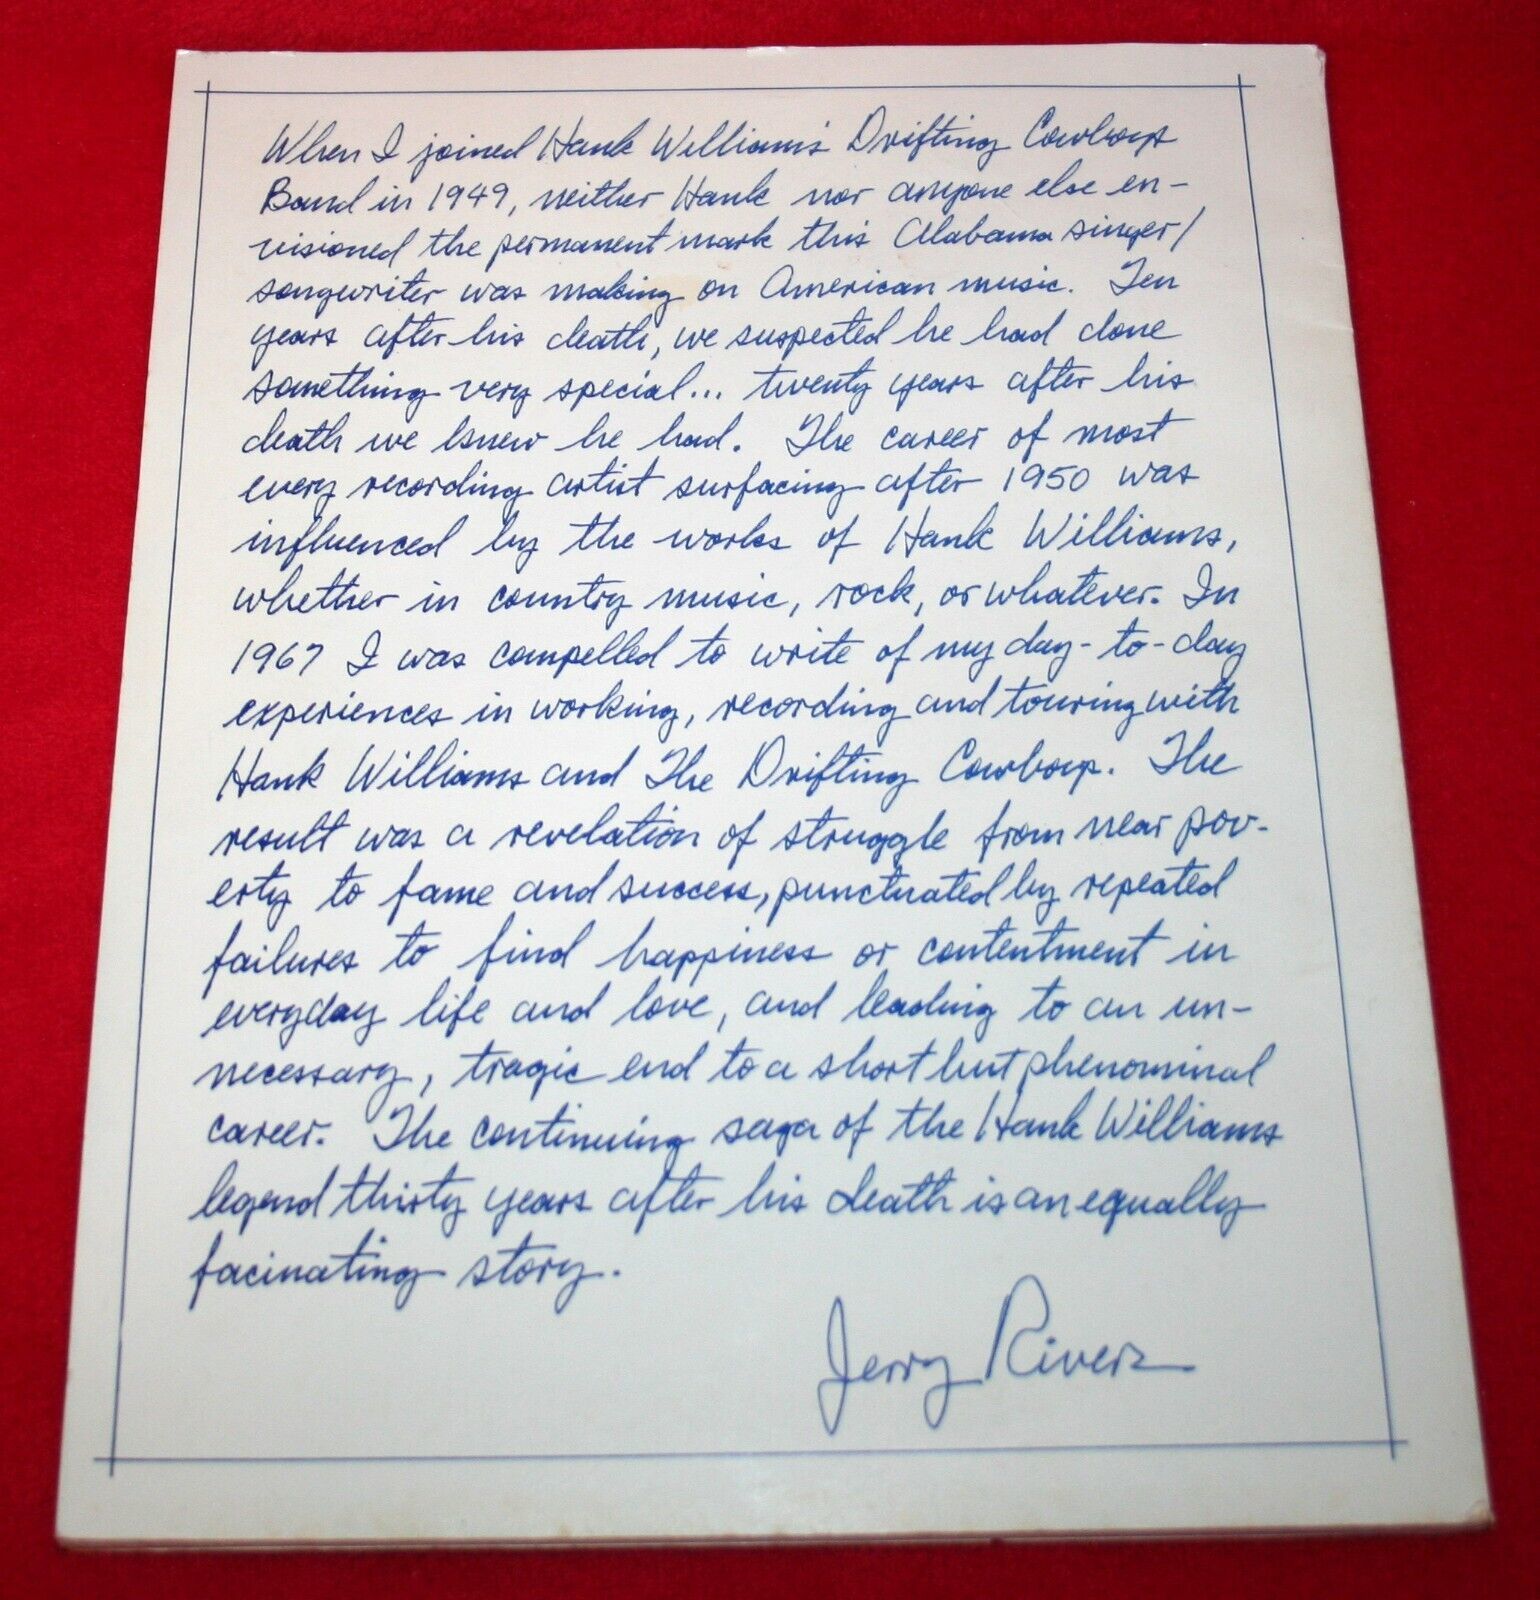 When I joined Hank Williams' Drifting Cowboys
Band in 1949, neither Hank nor anyone else en-
visioned the permanent mark this Alabama singer/
songwriter was making on American music. Ten
years after his death, we suspected he had done
something very special... twenty years after his
death we knew he had. The career of most
every recording artist surfacing after 1950 was
influenced by the works of Hank Williams,
whether in country music, rock, or whatever. In
1967 I was compelled to write of my day-to-day
experiences in working, recording and touring with
Hank Williams and The Drifting Cowboys. The
result was a revelation of struggle from near pov-
erty to fame and success, punctuated by repeated
failures to find happiness or contentment in
everyday life and love, and leading to an un-
necessary, tragic end to a short but phenominal
career. The continuing saga of the Hank Williams
legend thirty years after his death is an equally
facinating story.
Jerry Rivers